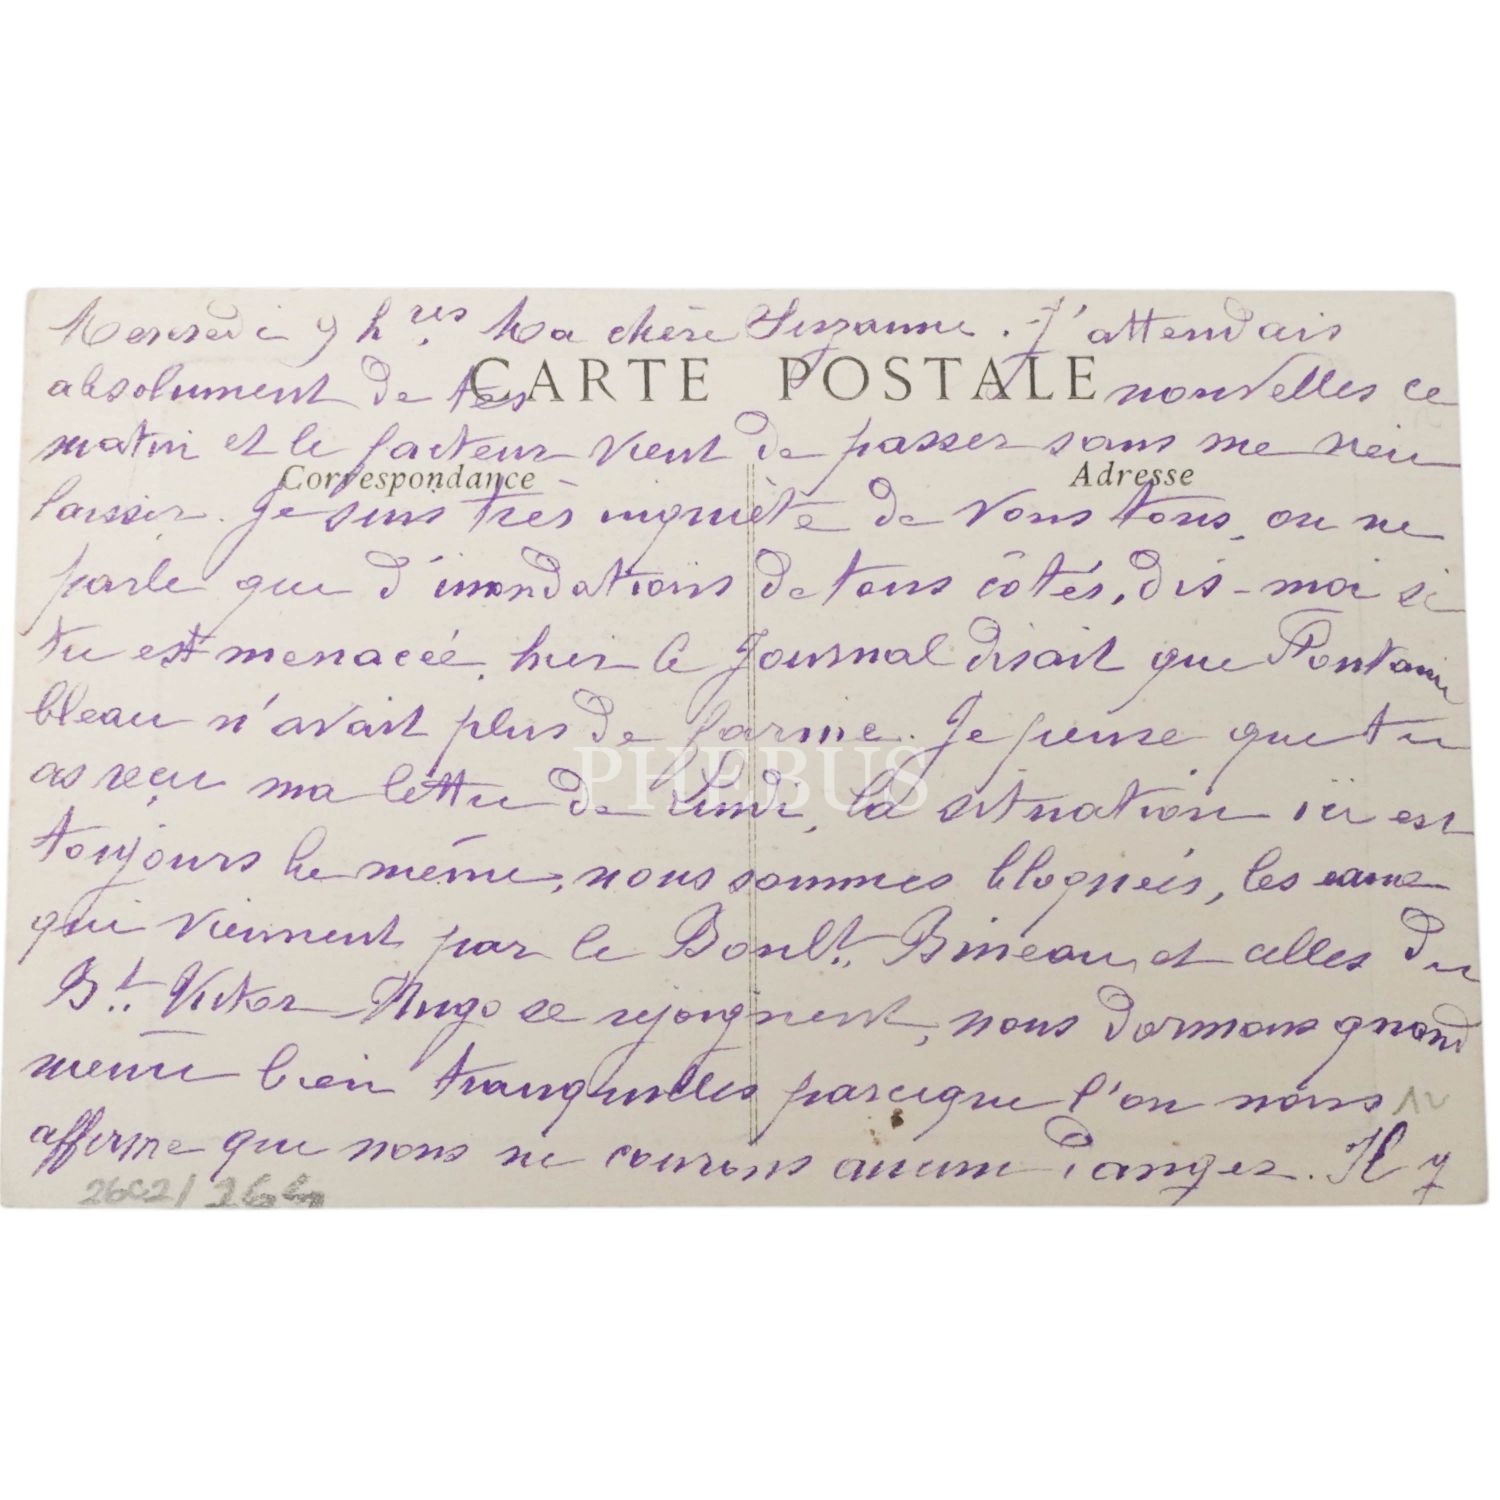 Mercredi 9 h.res Ma chère Suzanne. J'attendais
CARTE POSTALE
absolument de tes nouvelles ce
matin et le facteur vient de passer sans me rien
Correspondance
Adresse
laisser. Je suis très inquiète de vous tous, on ne
parle que d'inondations de tous côtés, dis-moi si
tu est menacée, hier le Journal disait que Fontaine
bleau n'avait plus de farine. Je pense que tu
PHEBUS
as reçu ma lettre de Lundi, la situation ici est
toujours la même, nous sommes bloqués, les eaux
qui viennent par le Boult. Bineau et celles du
Bt. Victor Hugo se rejoignent, nous dormons quand
même bien tranquilles parceque l'on nous
12
affirme que nous ne courons aucun danger. Il y